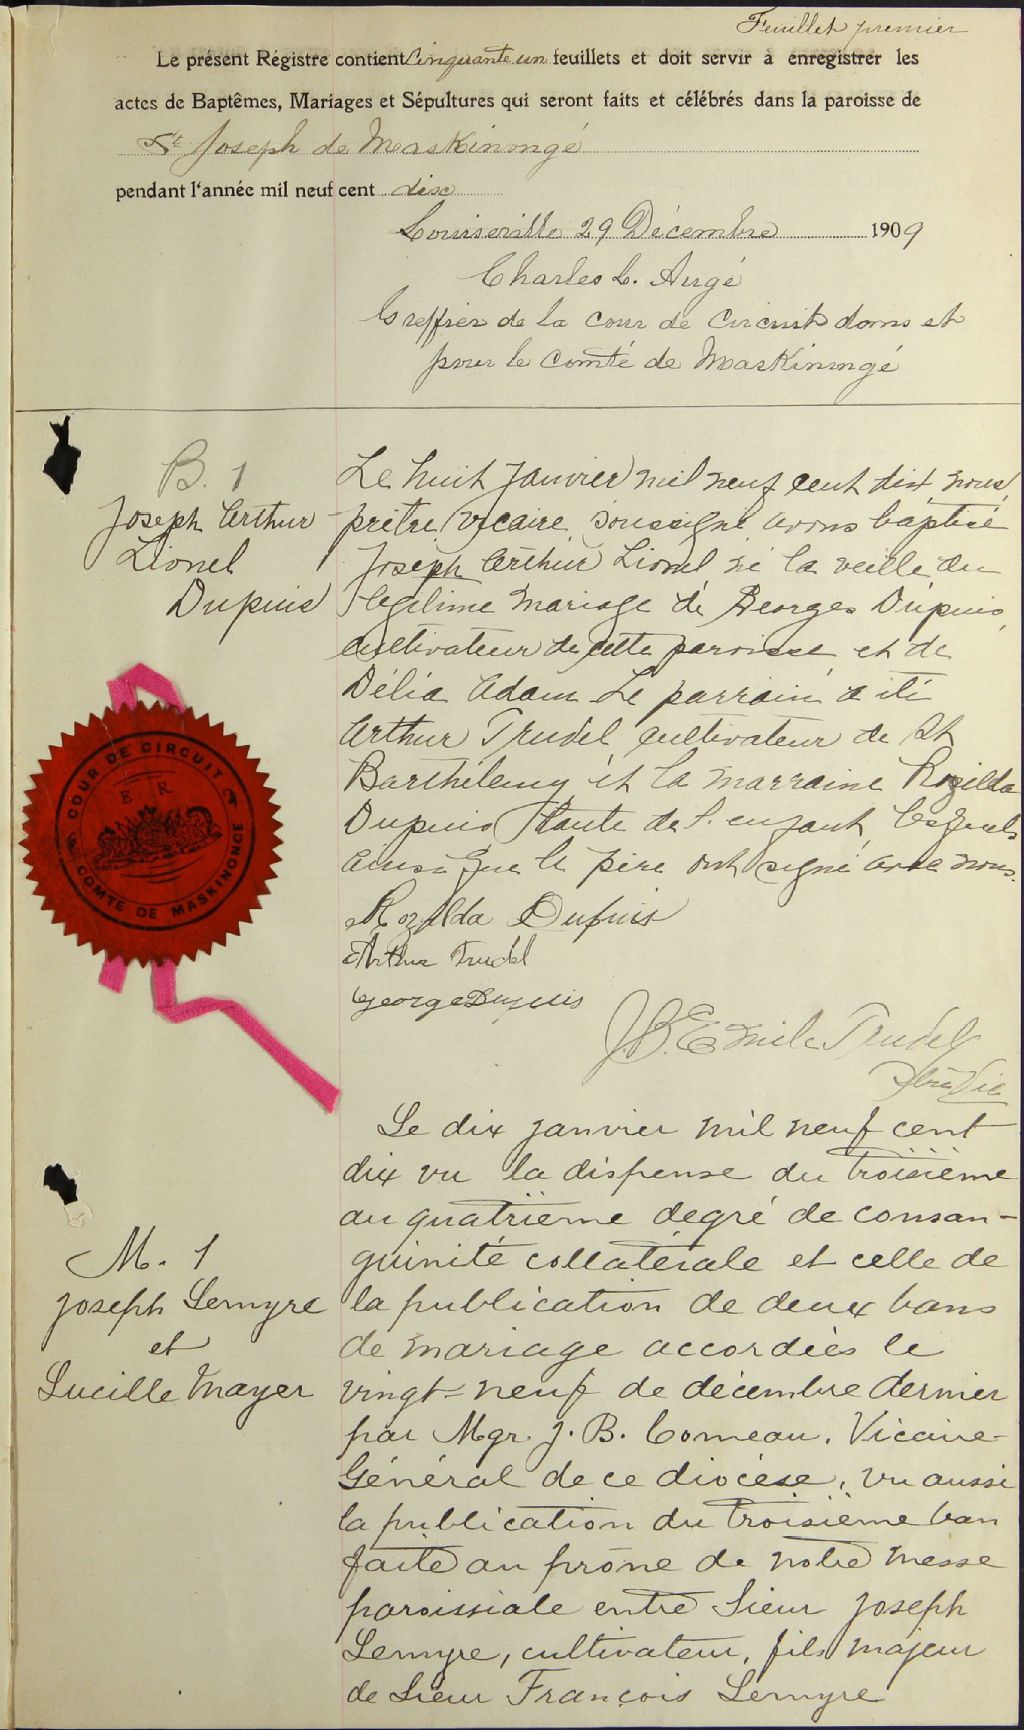 Feuillet premier
Le présent Régistre contient Cinquante un feuillets et doit servir à enregistrer les
actes de Baptêmes, Mariages et Sépultures qui seront faits et célébrés dans la paroisse de
St Joseph de Maskinongé
pendant l'année mil neuf cent dix
Louiseville 29 Décembre 1909
Charles L. Augé
Greffier de la Cour de Circuit dans et
pour le Comté de Maskinongé
B. 1
Joseph Arthur
Lionel
Dupuis
Le huit Janvier mil neuf cent dix nous
prêtre vicaire soussigné avons baptisé
Joseph Arthur Lionel né la veille du
légitime mariage de Georges Dupuis,
cultivateur de cette paroisse et de
Délia Adam Le parrain a été
Arthur Trudel cultivateur de St
Barthélemy et la marraine Rozilda
Dupuis tante de l'enfant lesquels
ainsi que le père ont signé avec nous.
COUR DE CIRCUIT
E R
COMTE DE MASKINONGE
Rozilda Dupuis
Arthur Trudel
George Dupuis
J.B.E Emile Trudel
Ptre Vic
M. 1
Joseph Lemyre
et
Lucille Mayer
Le dix janvier mil neuf cent
dix vu la dispense du troisième
au quatrième degré de consan-
guinité collatérale et celle de
la publication de deux bans
de mariage accordées le
vingt-neuf de décembre dernier
par Mgr. J. B. Comeau, Vicaire-
Général de ce diocèse, vu aussi
la publication du troisième ban
faite au prône de notre messe
paroissiale entre Sieur Joseph
Lemyre, cultivateur, fils majeur
de Sieur François Lemyre